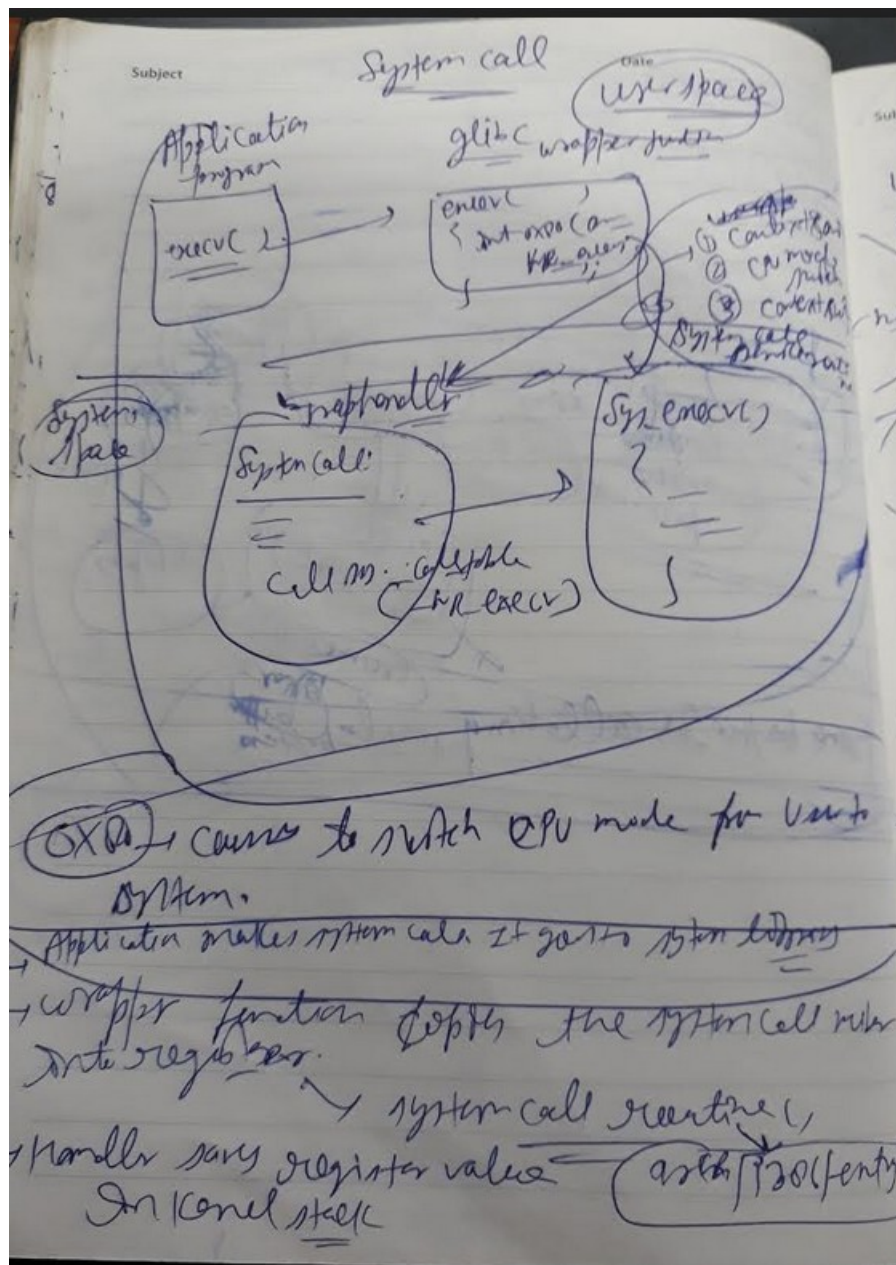 Subject
System call
Date
user space
Application
program
glibc wrapper function
execv( )
execv( )
{ int 0x80 (
}
① Context
② CPU mode
switch
③ Context
System call
System
space
traphandler
System call:
call sys_call table
(_NR_execv)
Sys_execv()
{
}
0x80 → causes to switch CPU mode for User to
system.
→ Application makes system call. It goes to system library
→ wrapper function copies the system call number
into register.
→ system call routine()
→ Handler saves register value
In Kernel stack
arch/i386/entry